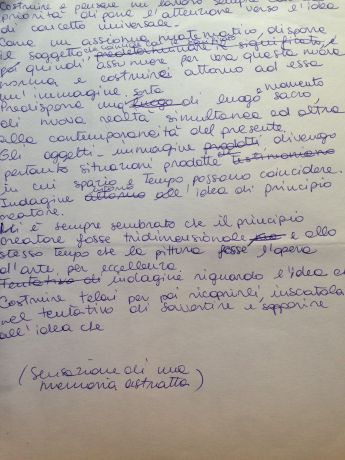 Costruire e pensare nel lavoro sempre
priorità di pone l'attenzione verso l'idea
di concetto universale -
Come un assioma matematico dispone
il soggetto
poi quindi assumere per vera questa nuova
forma e costruirci attorno ad essa
un'immagine.
Predispone una sorta luogo di luogo sacro, momento
di nuova realtà simultanea ed altra
alla contemporaneità del presente.
Gli oggetti - immagine prodotti divengo
pertanto situazioni prodotte testimoniano
in cui spazio e tempo possano coincidere.
Indagine attorno intorno all'idea di principio
creatore.
Mi è sempre sembrato che il principio
creatore fosse tridimensionale e allo
stesso tempo che la pittura fosse l'opera
d'arte per eccellenza.
Tentativo di indagine riguardo l'idea
Costruire telai per poi ricoprirli, inscatola
nel tentativo di sovvertire e sopperire
all'idea che
(Sensazione di una
memoria astratta)